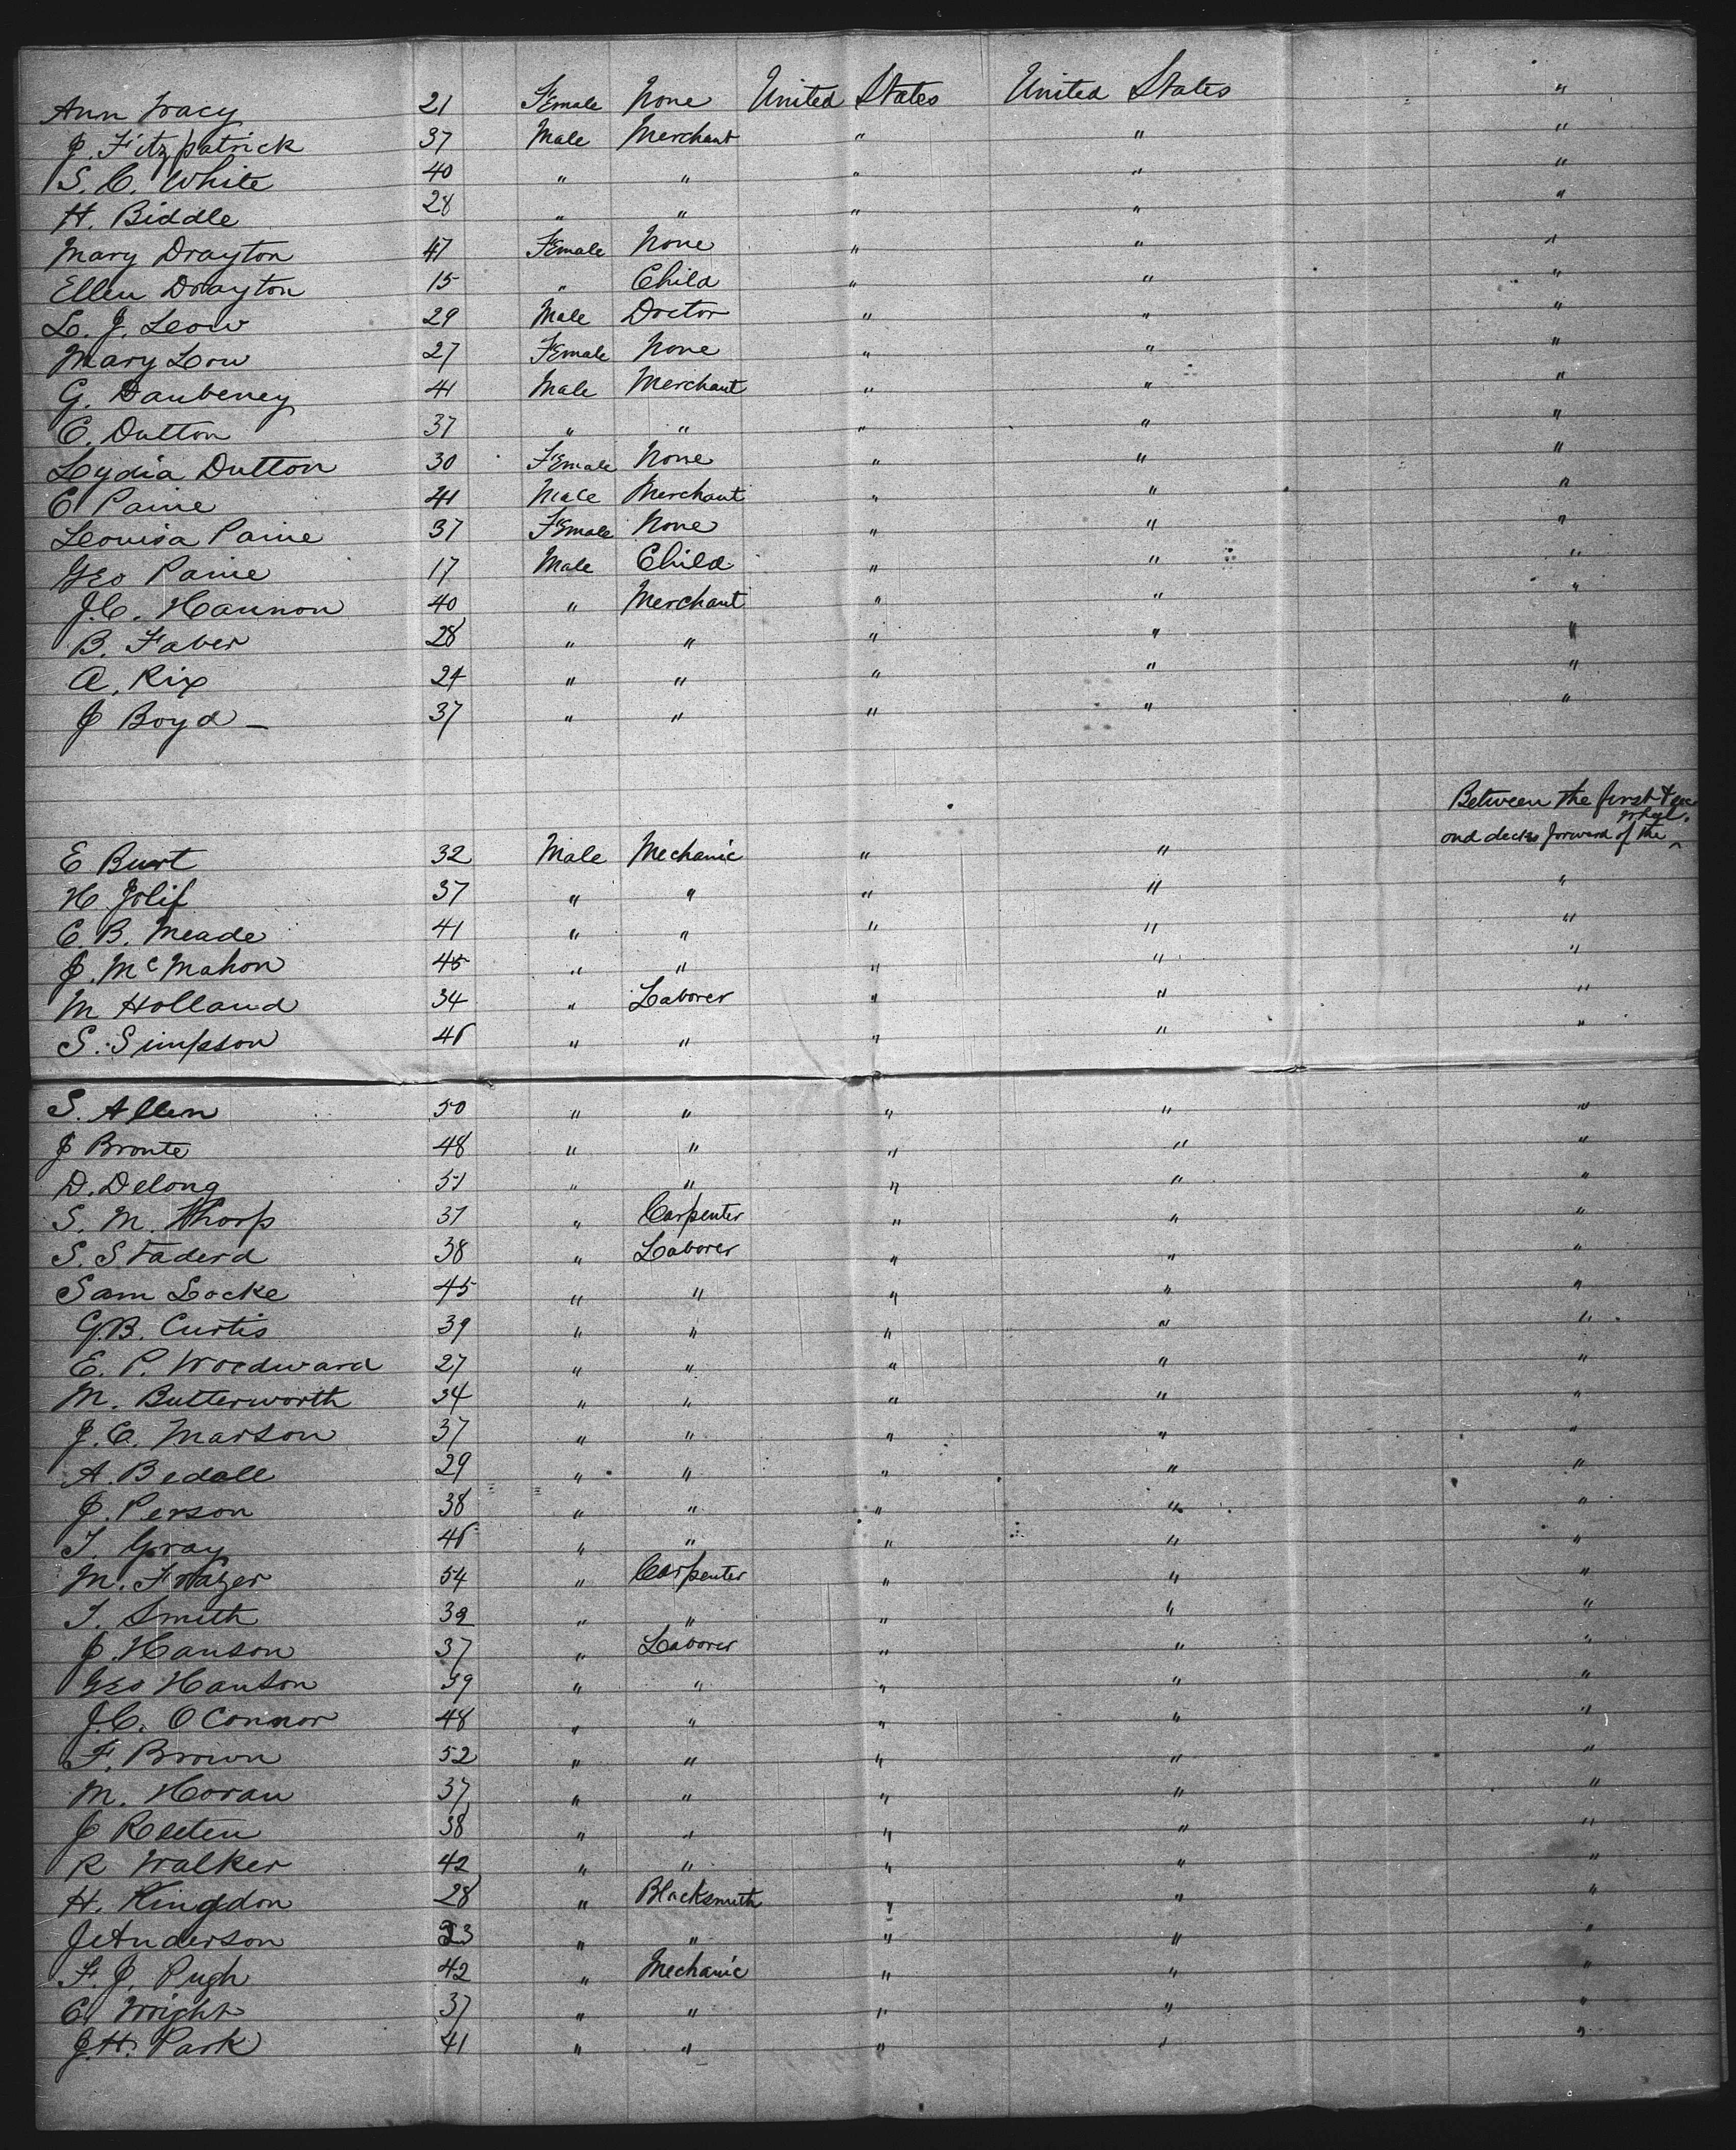 Ann Tracy 21 Female None United States United States "
J. Fitzpatrick 37 Male Merchant " " "
S. C. White 40 " " " " "
H. Biddle 28 " " " " "
Mary Drayton 47 Female None " " "
Ellen Drayton 15 " Child " " "
L. J. Leow 29 Male Doctor " " "
Mary Low 27 Female None " " "
G. Daubeney 41 Male Merchant " " "
C. Dutton 37 " " " " "
Lydia Dutton 30 Female None " " "
C Paine 41 Male Merchant " " "
Louisa Paine 37 Female None " " "
Geo Paine 17 Male Child " " "
J.C. Hannon 40 " Merchant " " "
B. Faber 28 " " " " "
A. Rix 24 " " " " "
J Boyd — 37 " " " " "
Between the first & sec
ond decks forward of the wheel.
E Burt 32 Male Mechanic " "
H Jolif 37 " " " " "
C. B. Meade 41 " " " " "
J. McMahon 45 " " " " "
M Holland 34 " Laborer " " "
S. Simpson " " " " "
S. Allen 50 " " " " "
J Bronte 48 " " " " "
D. Delong 51 " " " " "
S. M. Thorp 37 " Carpenter " " "
S. Staderd 38 " Laborer " " "
Sam Locke 45 " " " " "
G.B. Curtis 39 " " " " "
E. P. Woodward 27 " " " " "
M. Butterworth 34 " " " " "
J. C. Marson 37 " " " " "
A. Bedall 29 " " " " "
J. Person 38 " " " " "
T. Gray " " " " "
M. Frazer 54 " Carpenter " " "
T. Smith 39 " " " " "
J. Hanson 37 " Laborer " " "
Geo Hanson 39 " " " " "
J.C. OConnor 48 " " " " "
F. Brown 52 " " " " "
M. Horan 37 " " " " "
J 38 " " " " "
R Walker 42 " " " " "
H. Kingdon 28 " Blacksmith " " "
J Anderson 33 " " " " "
F. J. Pugh 42 " Mechanic " " "
C. Wright 37 " " " " "
J.H. Park 41 " " " " "